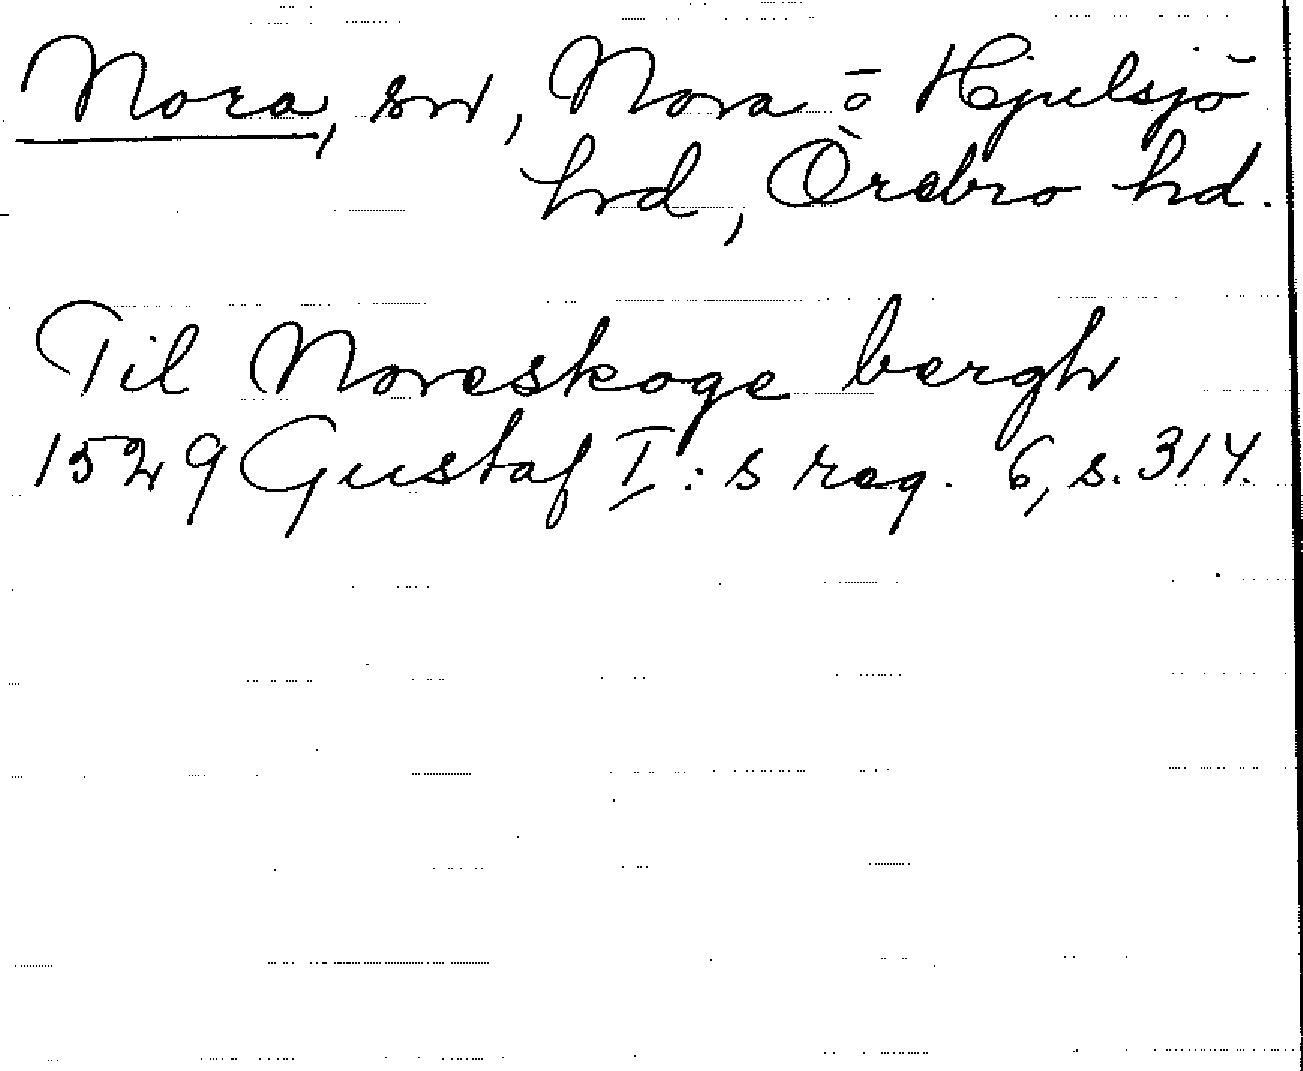 Nora, sn, Nora o Hjulsjö
hrd, Örebro hd.
Til Noreskoge bergh
1529 Gustaf I:s reg. 6, s. 314.